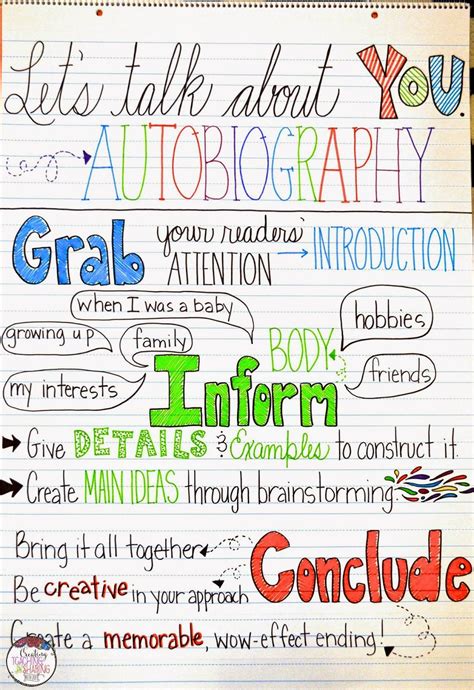 Let's talk about YOU.
AUTOBIOGRAPHY
Grab your readers' ATTENTION → INTRODUCTION
when I was a baby
hobbies
growing up
family
BODY
my interests
Inform
friends
Give DETAILS & Examples to construct it.
Create MAIN IDEAS through brainstorming
Bring it all together
Conclude
Be creative in your approach
Create a memorable, wow-effect ending!
Creating
TEACHING
SHARING